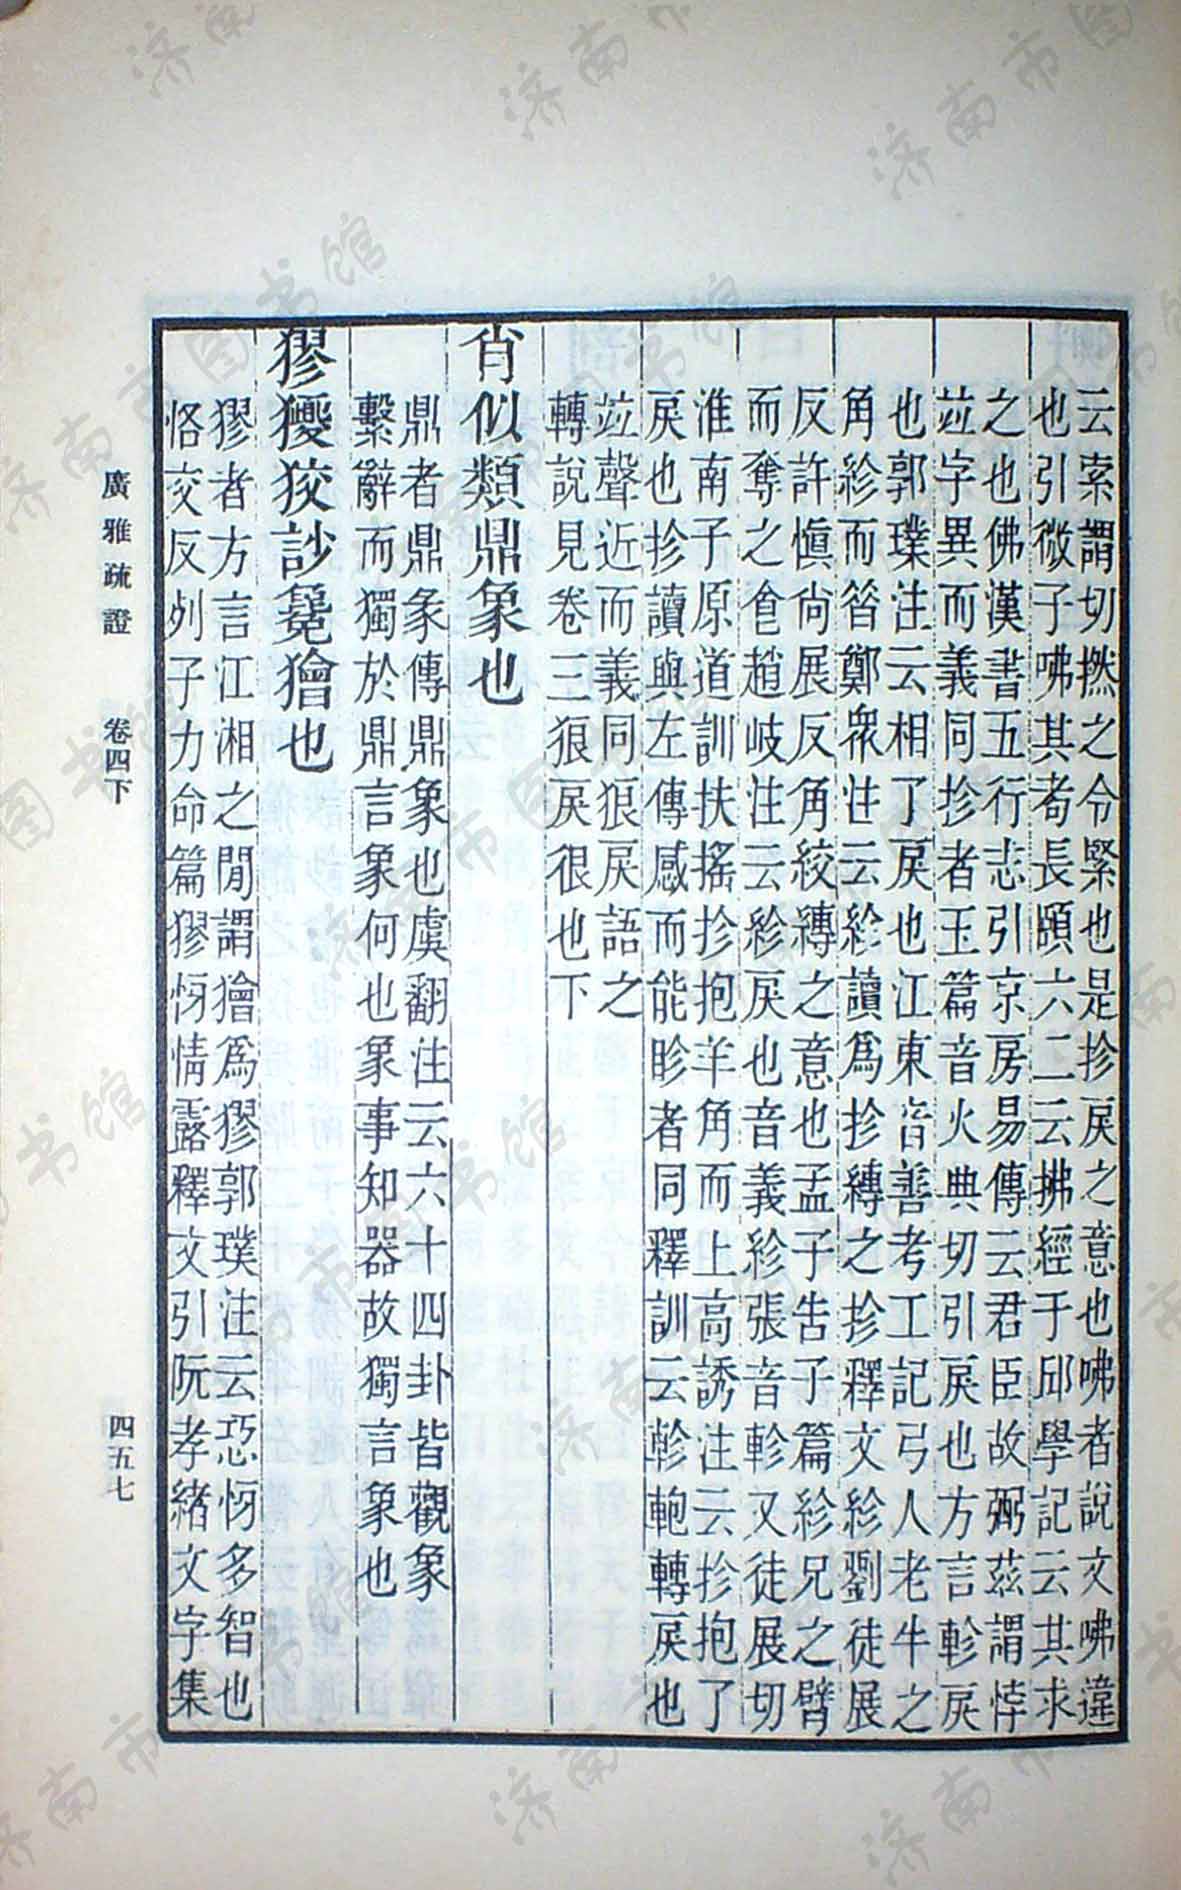 云索謂切撚之令緊也是抮戾之意也咈者說文咈違
也引微子咈其耇長頤六二云拂經于邱學記云其求
之也佛漢書五行志引京房易傳云君臣故弼茲謂悖
竝字異而義同抮者玉篇音火典切引戾也方言軫戾
也郭璞注云相了戾也江東音善考工記弓人老牛之
角紾而昔鄭衆注云紾讀爲抮縳之抮釋文紾劉徒展
反許愼尙展反角絞縳之意也孟子告子篇紾兄之臂
而奪之食趙岐注云紾戾也音義紾張音軫又徒展切
淮南子原道訓扶搖抮抱羊角而上高誘注云抮抱了
戾也抮讀與左傳感而能眕者同釋訓云軫軳轉戾也
竝聲近而義同狠戾語之
轉說見卷三狠戾很也下
肖似類鼎象也
鼎者鼎彖傳鼎象也虞翻注云六十四卦皆觀象
繫辭而獨於鼎言象何也象事知器故獨言象也
獿狡訬毚獪也
者方言江湘之閒謂獪爲郭璞注云恐㤉多智也
恪交反列子力命篇㤉情露釋文引阮孝緒文字集
廣雅疏證 卷四下 四五七
济南市图书馆